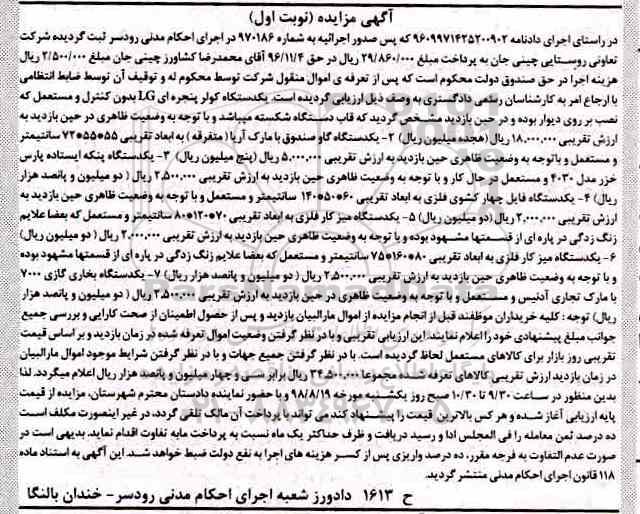 آگهی مزایده (نوبت اول)
در راستای اجرای دادنامه ۹۶۰۹۹۷۱۴۲۵۲۰۰۹۰۲ که پس صدور اجرائیه به شماره ۹۷۰۱۸۶ در اجرای احکام مدنی رودسر ثبت گردیده شرکت
تعاونی روستایی چینی جان به پرداخت مبلغ ۲۹/۸۶۰/۰۰۰ ریال در حق ۹۶/۱۱/۴ آقای محمدرضا کشاورز چینی جان مبلغ ۲/۵۰۰/۰۰۰ ریال
هزینه اجرا در حق صندوق دولت محکوم است که پس از تعرفه ی اموال منقول شرکت توسط محکوم له و توقیف آن توسط ضابط انتظامی
با ارجاع امر به کارشناسان رسمی دادگستری به وصف ذیل ارزیابی گردیده است. یکدستگاه کولر پنجره ای LG بدون کنترل و مستعمل که
نصب بر روی دیوار بوده و در حین بازدید مشخص گردید که قاب دستگاه شکسته میباشد و با توجه به وضعیت ظاهری در حین بازدید به
ارزش تقریبی ۱۸,۰۰۰,۰۰۰ ریال (هجده میلیون ریال) ۲- یکدستگاه گاو صندوق با مارک آریا (متفرقه) به ابعاد تقریبی ۵۵*۵۵*۷۲ سانتیمتر
و مستعمل و باتوجه به وضعیت ظاهری حین بازدید به ارزش تقریبی ۵,۰۰۰,۰۰۰ ریال (پنج میلیون ریال) ۳- یکدستگاه پنکه ایستاده پارس
خزر مدل ۴۰۳۰ و مستعمل در حال کار و با توجه به وضعیت ظاهری حین بازدید به ارزش تقریبی ۲,۵۰۰,۰۰۰ ریال (دو میلیون و پانصد هزار
ریال) ۴- یکدستگاه فایل چهار کشوی فلزی به ابعاد تقریبی ۶۰*۵۰*۱۴۰ سانتیمتر و مستعمل و با توجه به وضعیت ظاهری حین بازدید به
ارزش تقریبی ۲,۰۰۰,۰۰۰ ریال (دو میلیون ریال) ۵- یکدستگاه میز کار فلزی به ابعاد تقریبی ۷۰*۱۲۰*۸۰ سانتیمتر و مستعمل که بعضا علایم
زنگ زدگی در پاره ای از قسمتها مشهود بوده و با توجه به وضعیت ظاهری حین بازدید به ارزش تقریبی ۲,۰۰۰,۰۰۰ ریال (دو میلیون ریال)
۶- یکدستگاه میز کار فلزی به ابعاد تقریبی ۸۰*۱۶۰*۷۵ سانتیمتر و مستعمل که بعضا علایم زنگ زدگی در پاره ای از قسمتها مشهود بوده
و با توجه به وضعیت ظاهری حین بازدید به ارزش تقریبی ۲,۵۰۰,۰۰۰ ریال (دو میلیون و پانصد هزار ریال) ۷- یکدستگاه بخاری گازی ۷۰۰۰
با مارک تجاری آدنیس و مستعمل و با توجه به وضعیت ظاهری در حین بازدید به ارزش تقریبی ۲,۵۰۰,۰۰۰ ریال (دو میلیون و پانصد هزار
ریال) توجه: کلیه خریداران موظفند قبل از انجام مزایده از اموال مارالبیان بازدید و پس از حصول اطمینان از صحت کارایی و بررسی جمیع
جوانب مبلغ پیشنهادی خود را اعلام نمایند. این ارزیابی تقریبی و با در نظر گرفتن وضعیت اموال تعرفه شده در زمان بازدید و بر اساس قیمت
تقریبی روز بازار برای کالاهای مستعمل لحاظ گردیده است. با در نظر گرفتن جمیع جهات و با در نظر گرفتن شرایط موجود اموال مارالبیان
در زمان بازدید ارزش تقریبی کالاهای تعرفه شده مجموعا ۳۴,۵۰۰,۰۰۰ ریال برابر سی و چهار میلیون و پانصد هزار ریال اعلام میگردد. لذا
بدین منظور در ساعت ۹/۳۰ تا ۱۰/۳۰ صبح روز یکشنبه مورخه ۹۸/۸/۱۹ و با حضور نماینده دادستان محترم شهرستان، مزایده از قیمت
پایه ارزیابی آغاز شده و هر کس بالاترین قیمت را پیشنهاد کند می تواند با پرداخت آن مالک تلقی گردد، در غیر اینصورت مکلف است
ده درصد ثمن معامله را فی المجلس ادا و رسید دریافت و ظرف حداکثر یک ماه نسبت به پرداخت مابه تفاوت اقدام نماید. بدیهی است در
صورت عدم التفاوت به فرجه مقرر، ده درصد واریزی پس از کسر هزینه های اجرا به نفع دولت ضبط خواهد شد. این آگهی به استناد ماده
۱۱۸ قانون اجرای احکام مدنی منتشر گردید.
ح ۱۶۱۳ دادورز شعبه اجرای احکام مدنی رودسر- خندان بالنگا